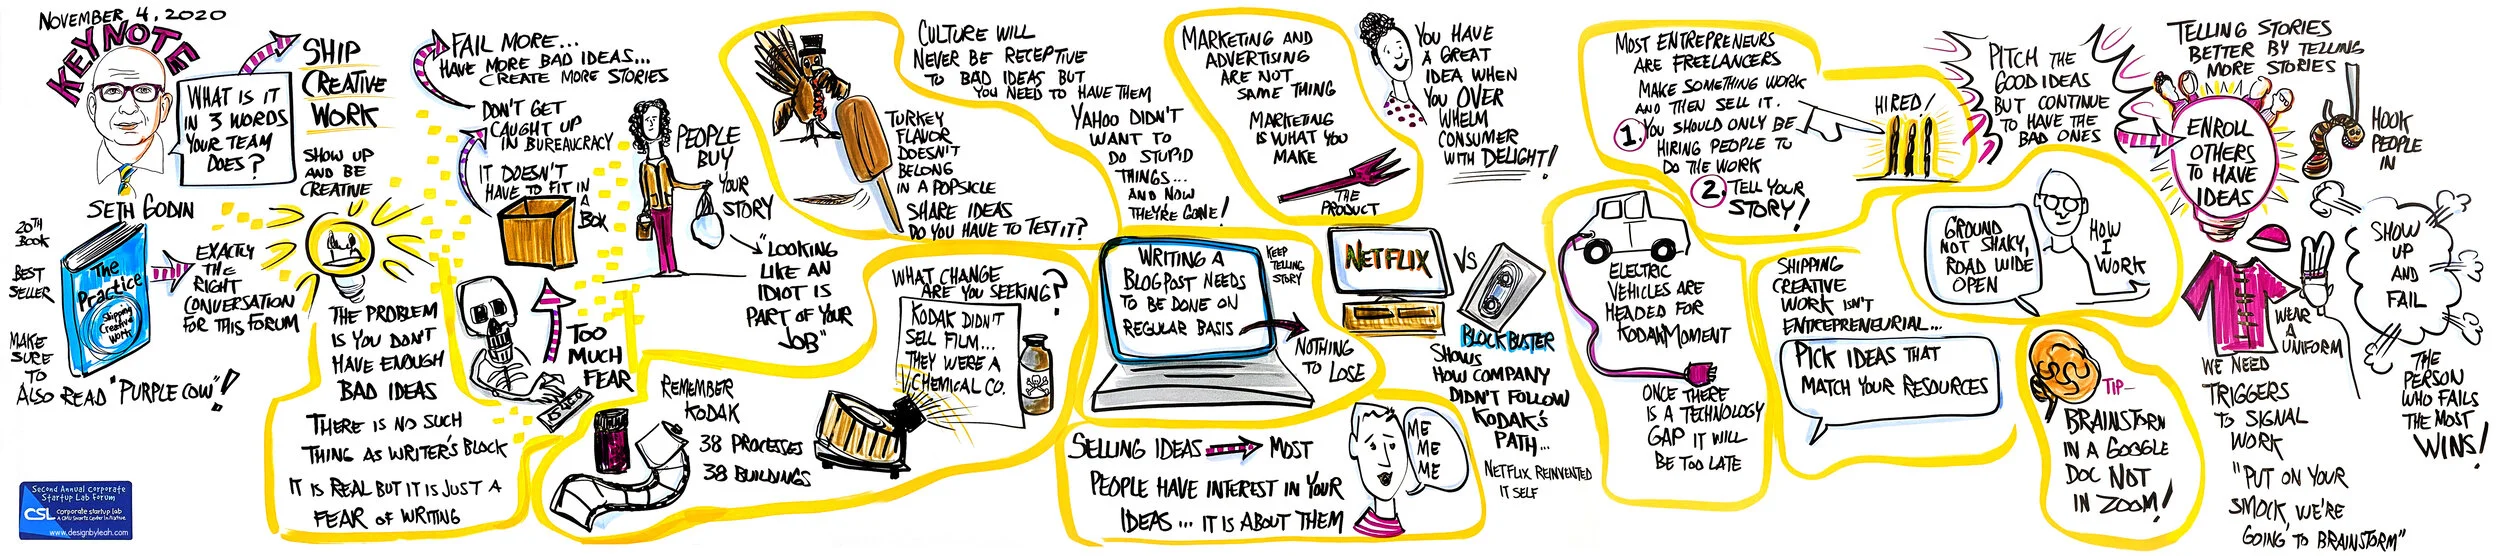 NOVEMBER 4, 2020
KEYNOTE
WHAT IS IT
IN 3 WORDS
YOUR TEAM
DOES?
SETH GODIN
20TH
BOOK
BEST
SELLER
The
Practice
Shipping
Creative
Work
EXACTLY
THE
RIGHT
CONVERSATION
FOR THIS FORUM
MAKE
SURE
TO
ALSO READ "PURPLE COW"!
Second Annual Corporate
Startup Lab Forum
CSL corporate startup lab
A CMU Swartz Center Initiative
www.designbyleah.com
SHIP
CREATIVE
WORK
SHOW UP
AND BE
CREATIVE
THE PROBLEM
IS YOU DON'T
HAVE ENOUGH
BAD IDEAS
THERE IS NO SUCH
THING AS WRITER'S BLOCK
IT IS REAL BUT IT IS JUST A
FEAR OF WRITING
FAIL MORE...
HAVE MORE BAD IDEAS...
CREATE MORE STORIES
DON'T GET
CAUGHT UP
IN BUREAUCRACY
IT DOESN'T
HAVE TO FIT IN
A
BOX
TOO
MUCH
FEAR
PEOPLE
BUY
YOUR
STORY
"LOOKING
LIKE AN
IDIOT IS
PART OF YOUR
JOB"
REMEMBER
KODAK
38 PROCESSES
38 BUILDINGS
WHAT CHANGE
ARE YOU SEEKING?
KODAK DIDN'T
SELL FILM...
THEY WERE A
CHEMICAL CO.
CULTURE WILL
NEVER BE RECEPTIVE
TO BAD IDEAS BUT
YOU NEED TO HAVE THEM
TURKEY
FLAVOR
DOESN'T
BELONG
IN A POPSICLE
SHARE IDEAS
DO YOU HAVE TO TEST IT?
YAHOO DIDN'T
WANT TO
DO STUPID
THINGS...
AND NOW
THEY'RE GONE!
MARKETING AND
ADVERTISING
ARE NOT
SAME THING
MARKETING
IS WHAT YOU
MAKE
THE
PRODUCT
YOU HAVE
A GREAT
IDEA WHEN
YOU OVER
WHELM
CONSUMER
WITH DELIGHT!
WRITING A
BLOGPOST NEEDS
TO BE DONE ON
REGULAR BASIS
KEEP
TELLING
STORY
NOTHING
TO LOSE
NETFLIX
VS
BLOCKBUSTER
SHOWS
HOW COMPANY
DIDN'T FOLLOW
KODAK'S
PATH...
NETFLIX REINVENTED
IT SELF
SELLING IDEAS MOST
PEOPLE HAVE INTEREST IN YOUR
IDEAS... IT IS ABOUT THEM
ME
ME
ME
MOST ENTREPRENEURS
ARE FREELANCERS
MAKE SOMETHING WORK
AND THEN SELL IT.
1. YOU SHOULD ONLY BE
HIRING PEOPLE TO
DO THE WORK
2. TELL YOUR
STORY!
HIRED!
ELECTRIC
VEHICLES ARE
HEADED FOR
KODAK MOMENT
ONCE THERE
IS A TECHNOLOGY
GAP IT WILL
BE TOO LATE
PITCH THE
GOOD IDEAS
BUT CONTINUE
TO HAVE THE
BAD ONES
GROUND
NOT SHAKY,
ROAD WIDE
OPEN
HOW
I
WORK
SHIPPING
CREATIVE
WORK ISN'T
ENTREPRENEURIAL...
PICK IDEAS THAT
MATCH YOUR RESOURCES
TIP-
BRAINSTORM
IN A GOOGLE
DOC NOT
IN ZOOM!
TELLING STORIES
BETTER BY TELLING
MORE STORIES
ENROLL
OTHERS
TO HAVE
IDEAS
HOOK
PEOPLE
IN
WEAR
A
UNIFORM
WE NEED
TRIGGERS
TO SIGNAL
WORK
"PUT ON YOUR
SMOCK, WE'RE
GOING TO BRAINSTORM"
SHOW
UP
AND
FAIL
THE
PERSON
WHO FAILS
THE MOST
WINS!